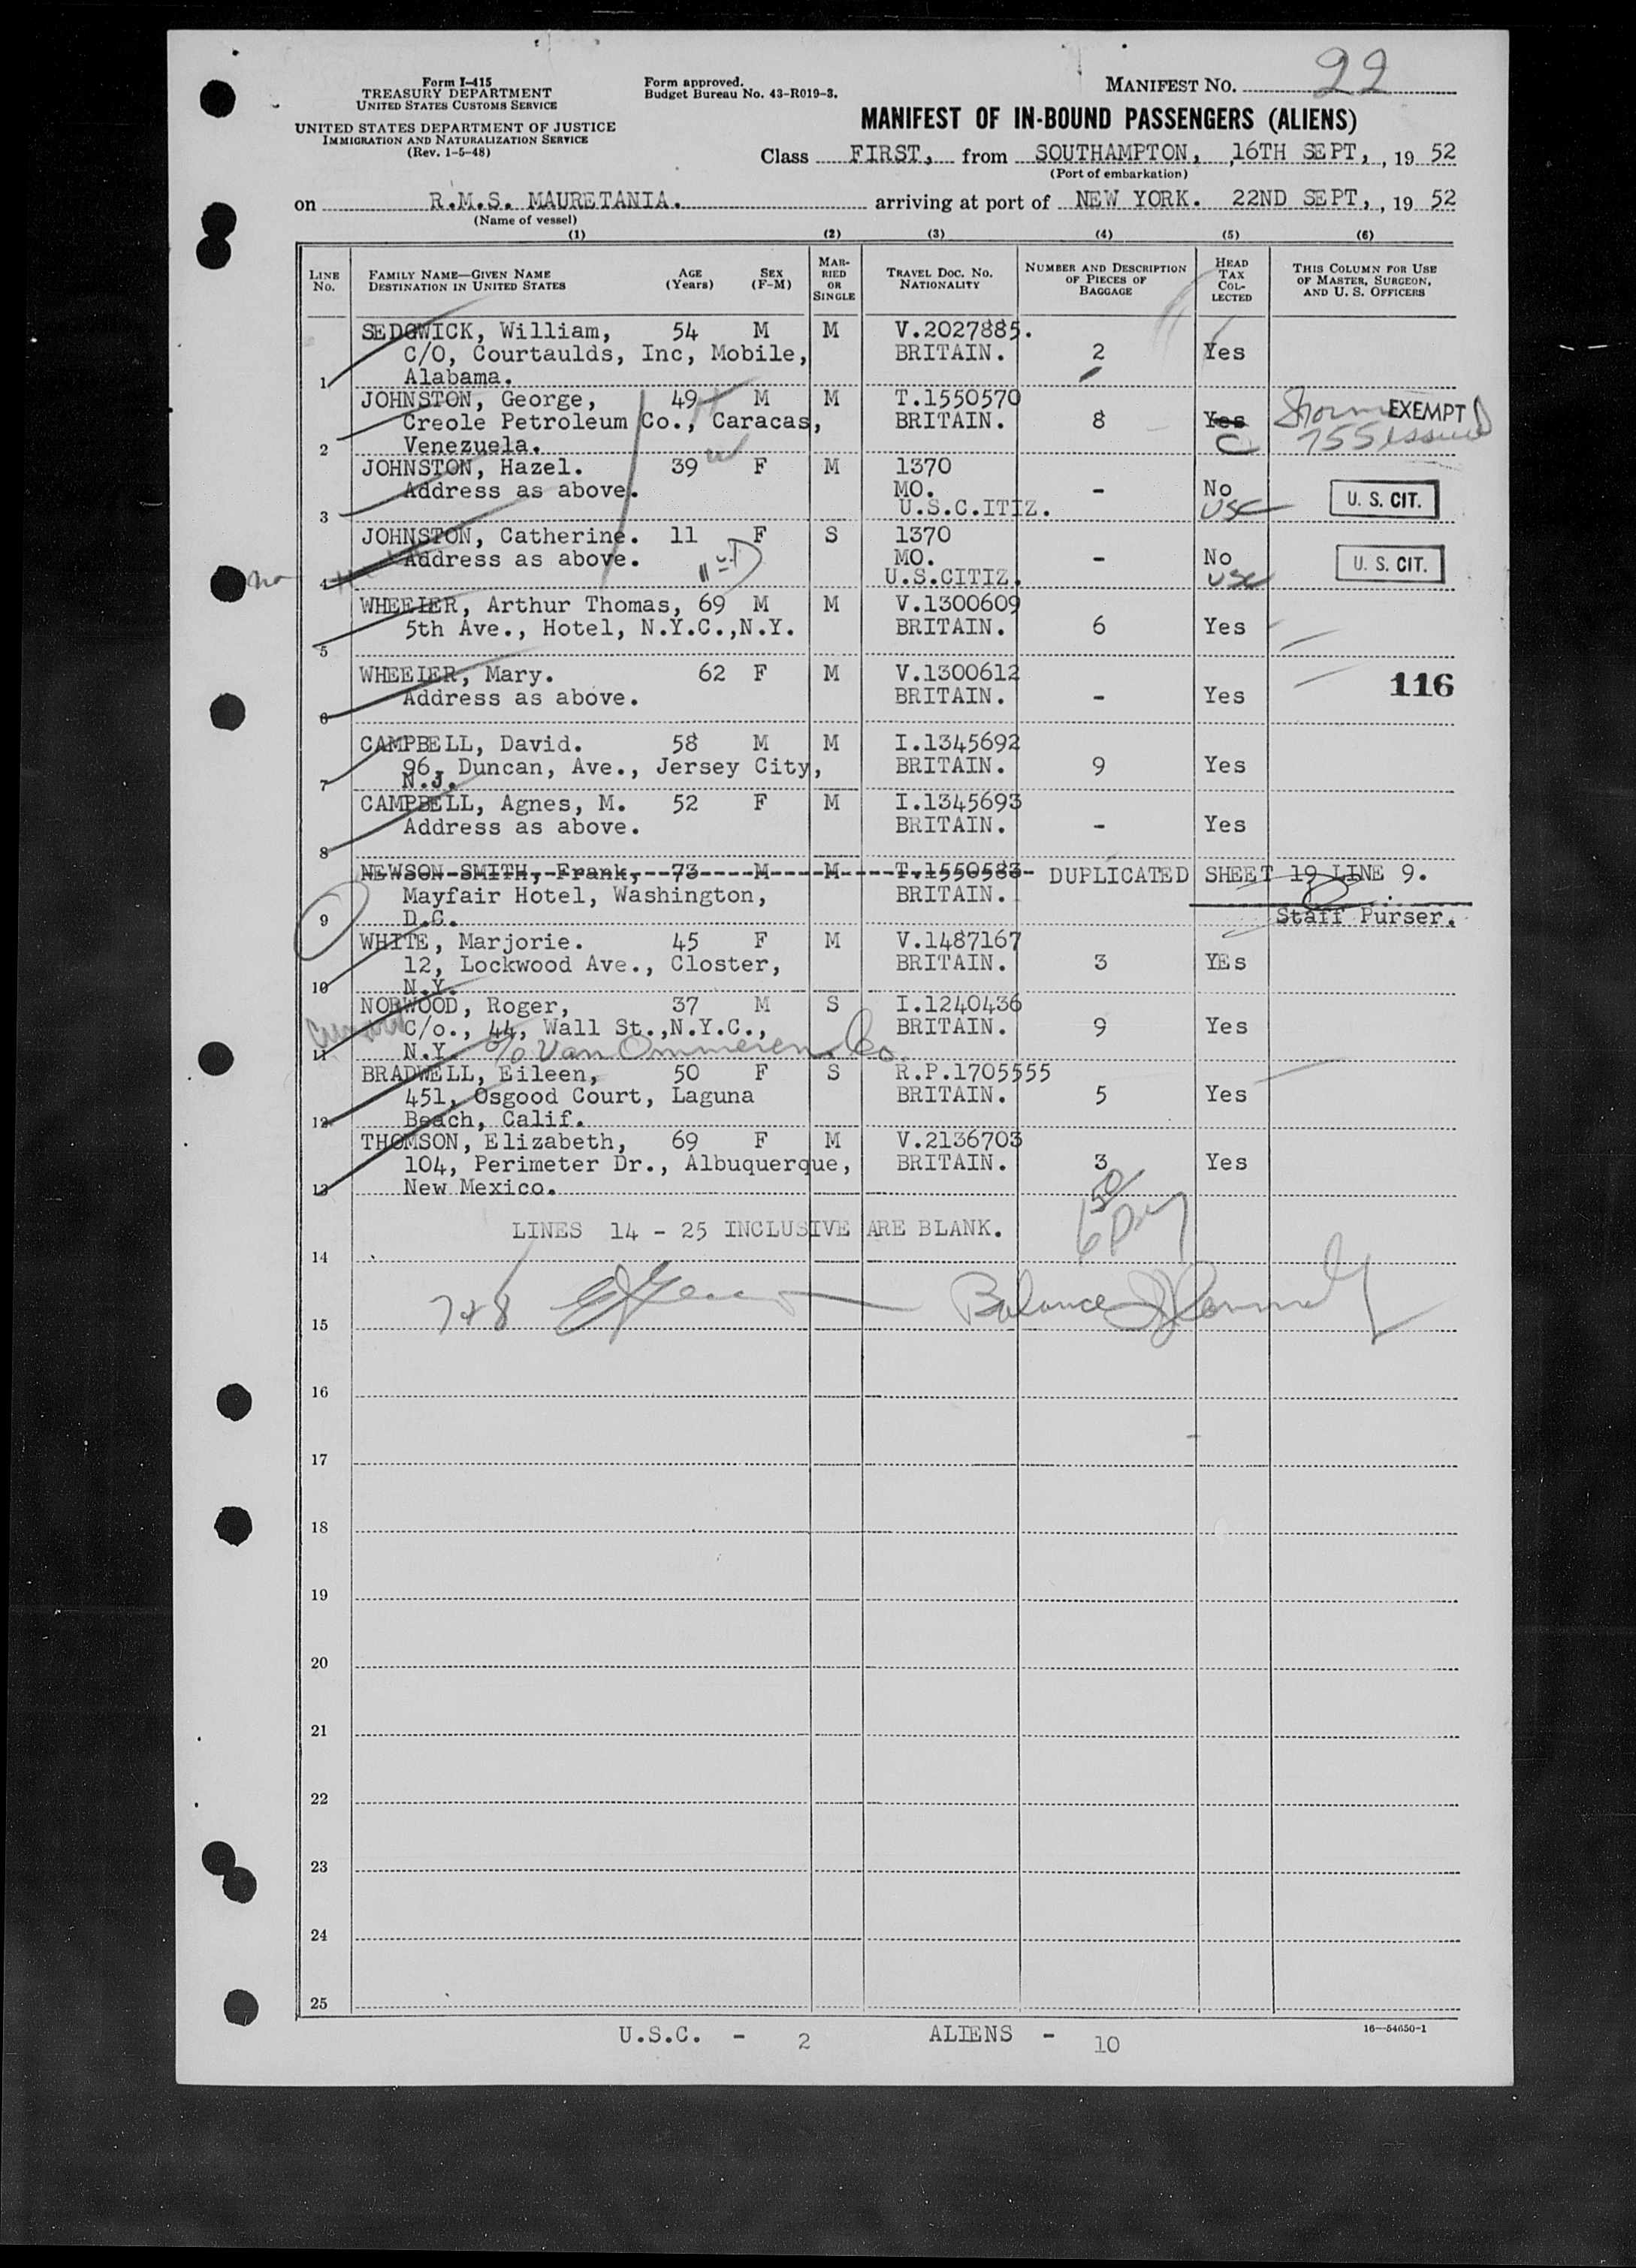 Form I-415
TREASURY DEPARTMENT
UNITED STATES CUSTOMS SERVICE
UNITED STATES DEPARTMENT OF JUSTICE
IMMIGRATION AND NATURALIZATION SERVICE
(Rev. 1-5-48)
Form approved.
Budget Bureau No. 43-R019-3.
MANIFEST NO. 22
MANIFEST OF IN-BOUND PASSENGERS (ALIENS)
Class FIRST, from SOUTHAMPTON, ,16TH SEPT, , 19 52
(Port of embarkation)
on R.M.S. MAURETANIA. arriving at port of NEW YORK. 22ND SEPT, , 19 52
(Name of vessel)
(1) (2) (3) (4) (5) (6)
LINE NO. FAMILY NAME—GIVEN NAME DESTINATION IN UNITED STATES AGE (Years) SEX (F-M) MARRIED OR SINGLE TRAVEL DOC. NO. NATIONALITY NUMBER AND DESCRIPTION OF PIECES OF BAGGAGE HEAD TAX COLLECTED THIS COLUMN FOR USE OF MASTER, SURGEON, AND U. S. OFFICERS
SEDGWICK, William, 54 M M V.2027885.
C/O, Courtaulds, Inc, Mobile, BRITAIN. 2 Yes
1 Alabama.
JOHNSTON, George, 49 M M T.1550570 EXEMPT
Creole Petroleum Co., Caracas, BRITAIN. 8 Yes 755 issued
2 Venezuela. C
JOHNSTON, Hazel. 39 W F M 1370
Address as above. MO. - No U. S. CIT.
3 U.S.C.ITIZ. USC
JOHNSTON, Catherine. 11 F S 1370
Address as above. MO. - No U. S. CIT.
no 4 U.S.CITIZ. USC
WHEEIER, Arthur Thomas, 69 M M V.1300609
5th Ave., Hotel, N.Y.C.,N.Y. BRITAIN. 6 Yes
5
WHEEIER, Mary. 62 F M V.1300612 116
Address as above. BRITAIN. - Yes
6
CAMPBELL, David. 58 M M I.1345692
96, Duncan, Ave., Jersey City, BRITAIN. 9 Yes
7 N.J.
CAMPBELL, Agnes, M. 52 F M I.1345693
Address as above. BRITAIN. - Yes
8
NEWSON-SMITH, Frank, 73 M M T.1550583 DUPLICATED SHEET 19 LINE 9.
Mayfair Hotel, Washington, BRITAIN.
9 D.C. Staff Purser.
WHITE, Marjorie. 45 F M V.1487167
12, Lockwood Ave., Closter, BRITAIN. 3 YEs
10 N.Y.
NORWOOD, Roger, 37 M S I.1240436
C/o., 44, Wall St.,N.Y.C., BRITAIN. 9 Yes
11 N.Y. c/o Van Ommeren Co.
BRADWELL, Eileen, 50 F S R.P.1705555
451, Osgood Court, Laguna BRITAIN. 5 Yes
12 Beach, Calif.
THOMSON, Elizabeth, 69 F M V.2136703
104, Perimeter Dr., Albuquerque, BRITAIN. 3 Yes
13 New Mexico.
LINES 14 - 25 INCLUSIVE ARE BLANK.
14
7+8 Balance
15
16
17
18
19
20
21
22
23
24
25
U.S.C. - 2 ALIENS - 10
16—54650-1